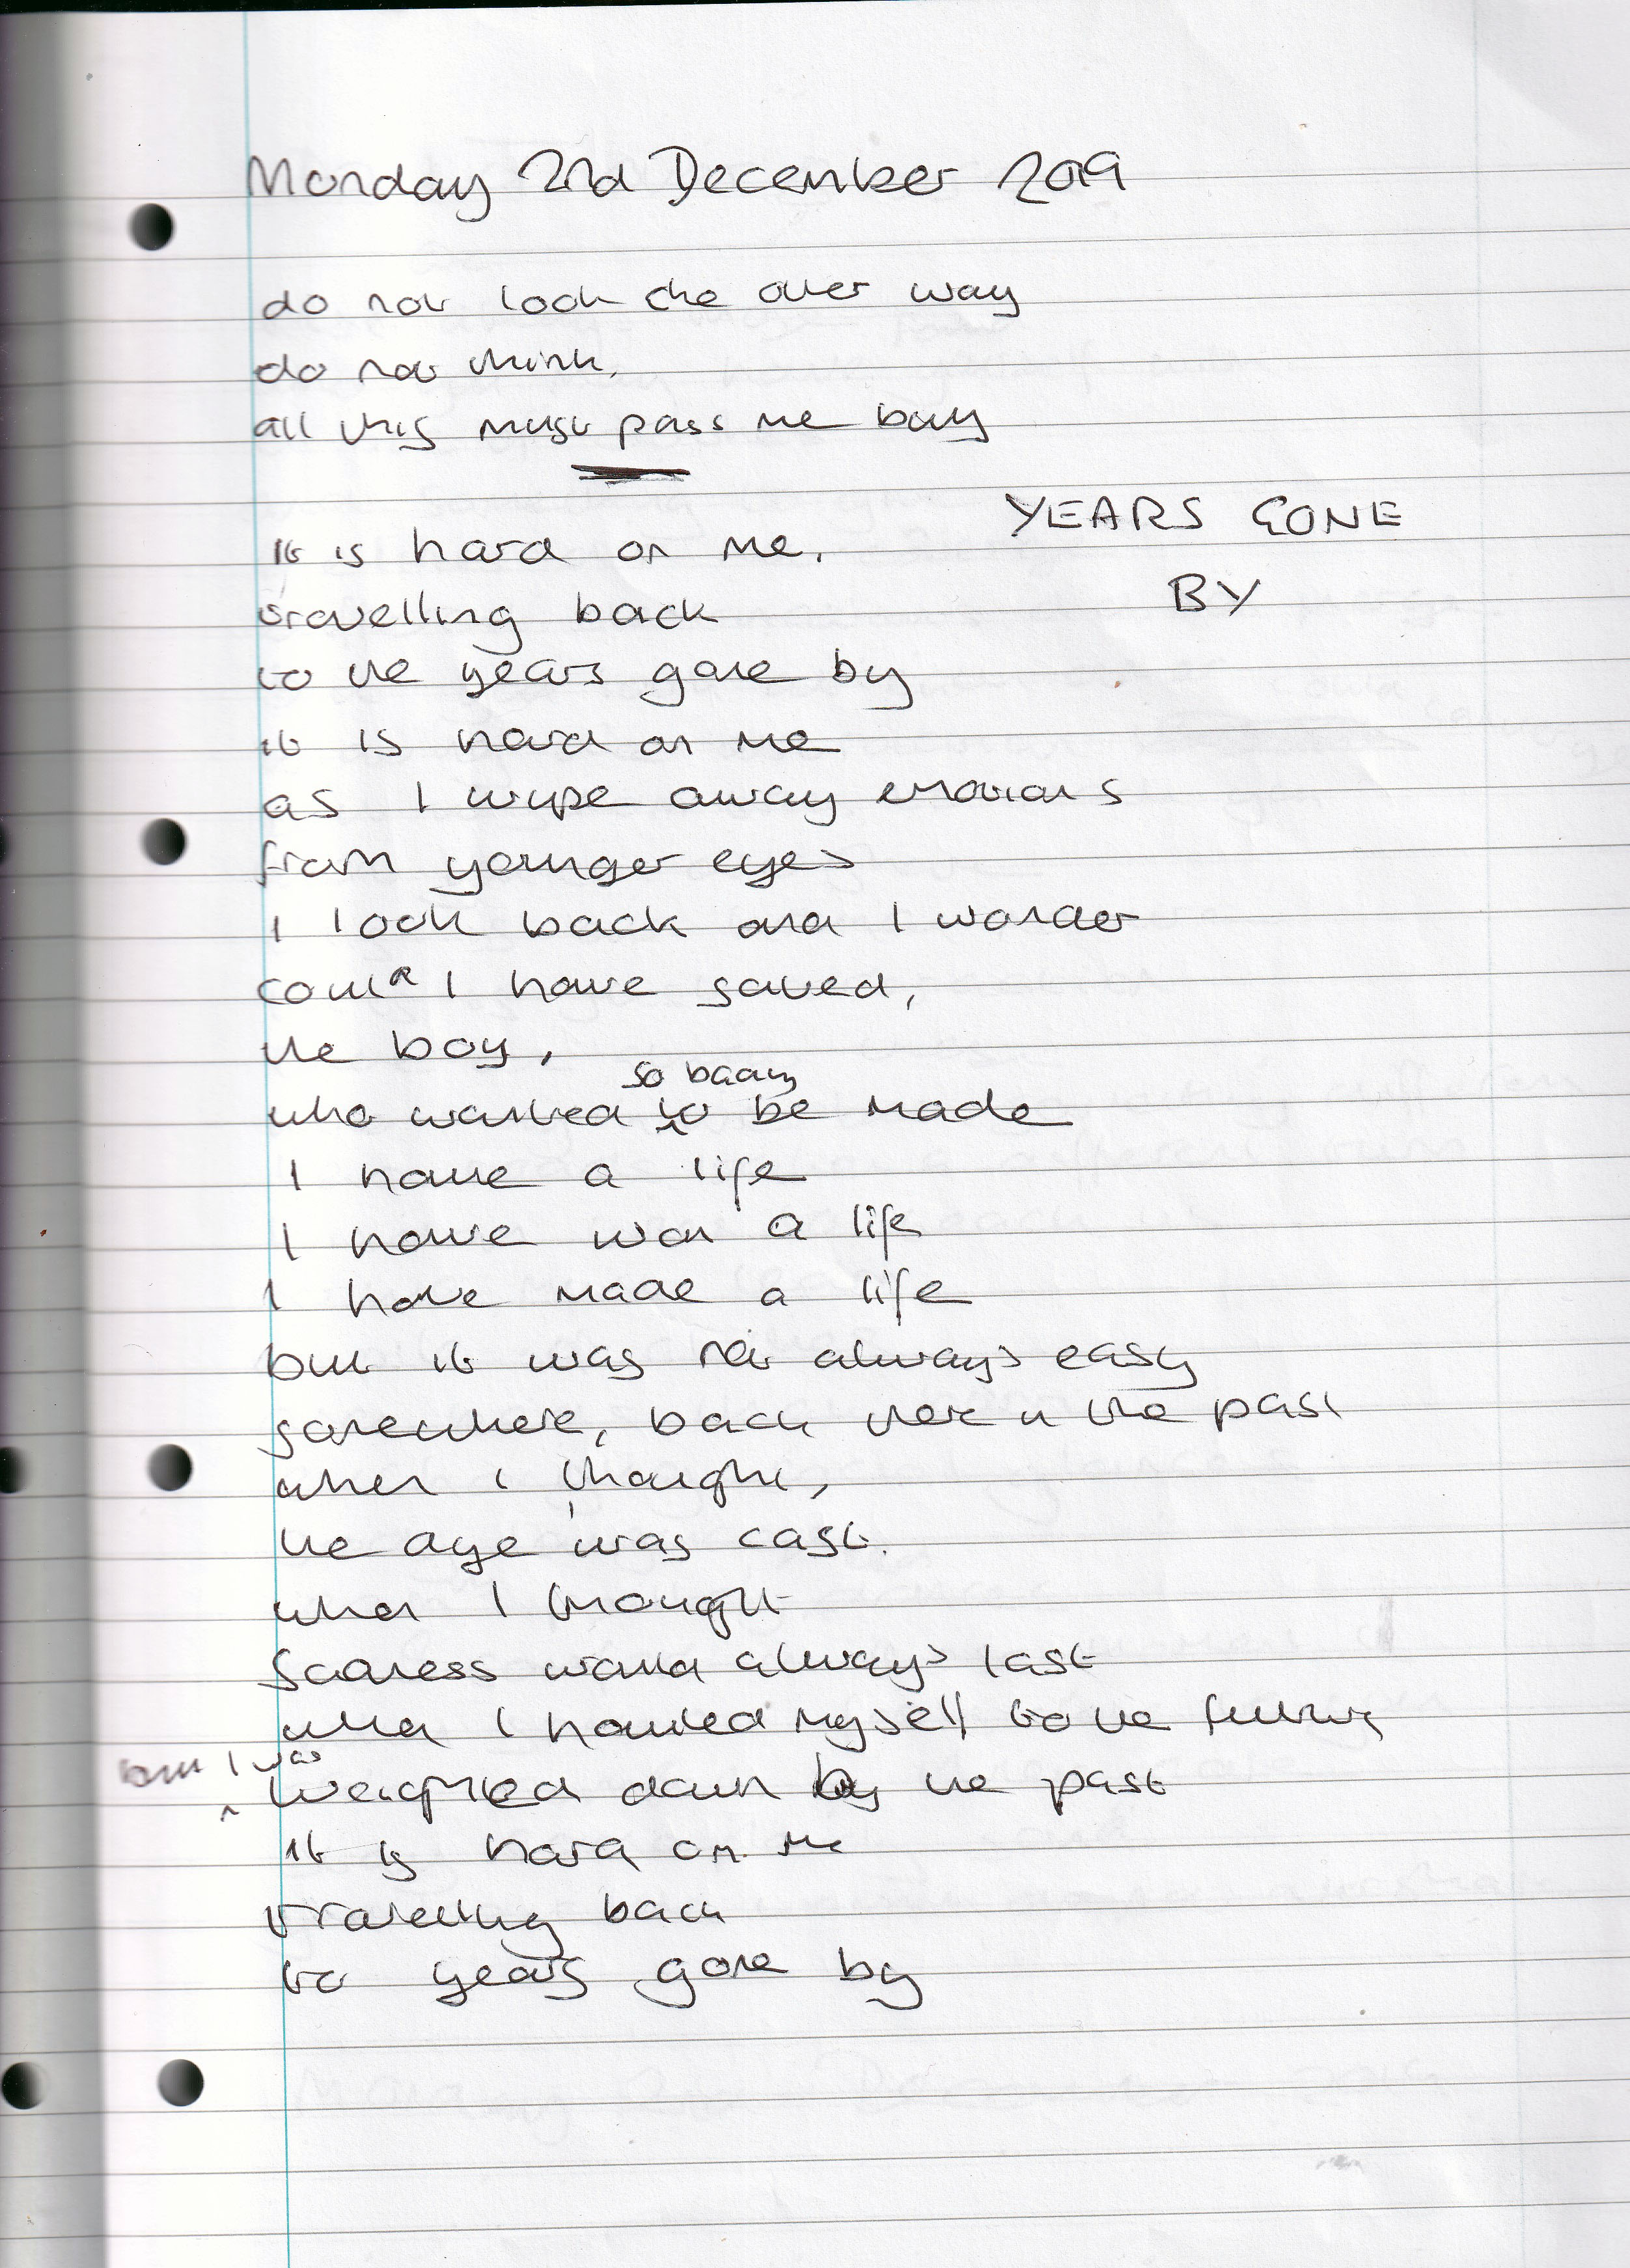 Monday 2nd December 2019
do not look the other way
do not think,
all this must pass me bay
YEARS GONE
BY
it is hard on me,
travelling back
to the years gone by
it is hard on me
as I wipe away emotions
from younger eyes
I look back and I wonder
could I have saved,
the boy,
so badly
who wanted to be made
I have a life
I have won a life
I have made a life
but it was not always easy
somewhere, back there in the past
when I thought,
the age was cast.
when I thought
Sadness would always last
when I handed myself to the future
but I was
weighted down by the past
it is hard on me
travelling back
to years gone by